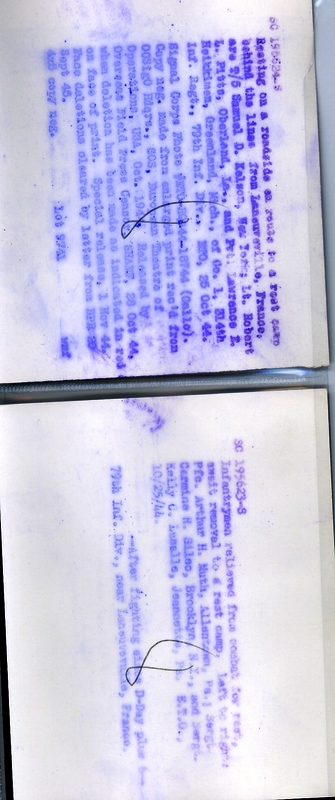 SC 195624-S
Resting on a roadside en route to a rest camp
behind the lines from Laneuveville, France,
are T/5 Samuel D. Kelson, New York; Lt. Robert
L. Pitts, Oberland, La., and Pvt. Lawrence E.
Heikkinen, Greenland, Mich., of Co. I, 314th
Inf. Regt., 79th Inf. Div., 25 Oct 44.
Signal Corps Photo (Gallo).
Copy neg. made from print rec'd from
OCSigO Hdqrs., SOS, Theatre of
Operations, USA, Oct. Released by
Overseas Field Press Censor, 28 Oct 44,
when deletion has been made as indicated in red
on face of print. Special release, 1 Nov 44.
Face deletions cleared by letter from
Sept 45.
4x5 copy neg. Lot
SC 195623-S
Infantrymen relieved from combat for rest,
await removal to a rest camp. Left to right:
Pfc. Arthur H. Muth, Allentown, Pa.; Sergt.
Carmine R. Sileo, Brooklyn, N.Y., and Sergt.
Kelly C. Lasalle, Jeannette, Pa. E.T.O.,
10/25/44.
--After fighting since D-Day plus 6--
79th Inf. Div., near Laneuveville, France.